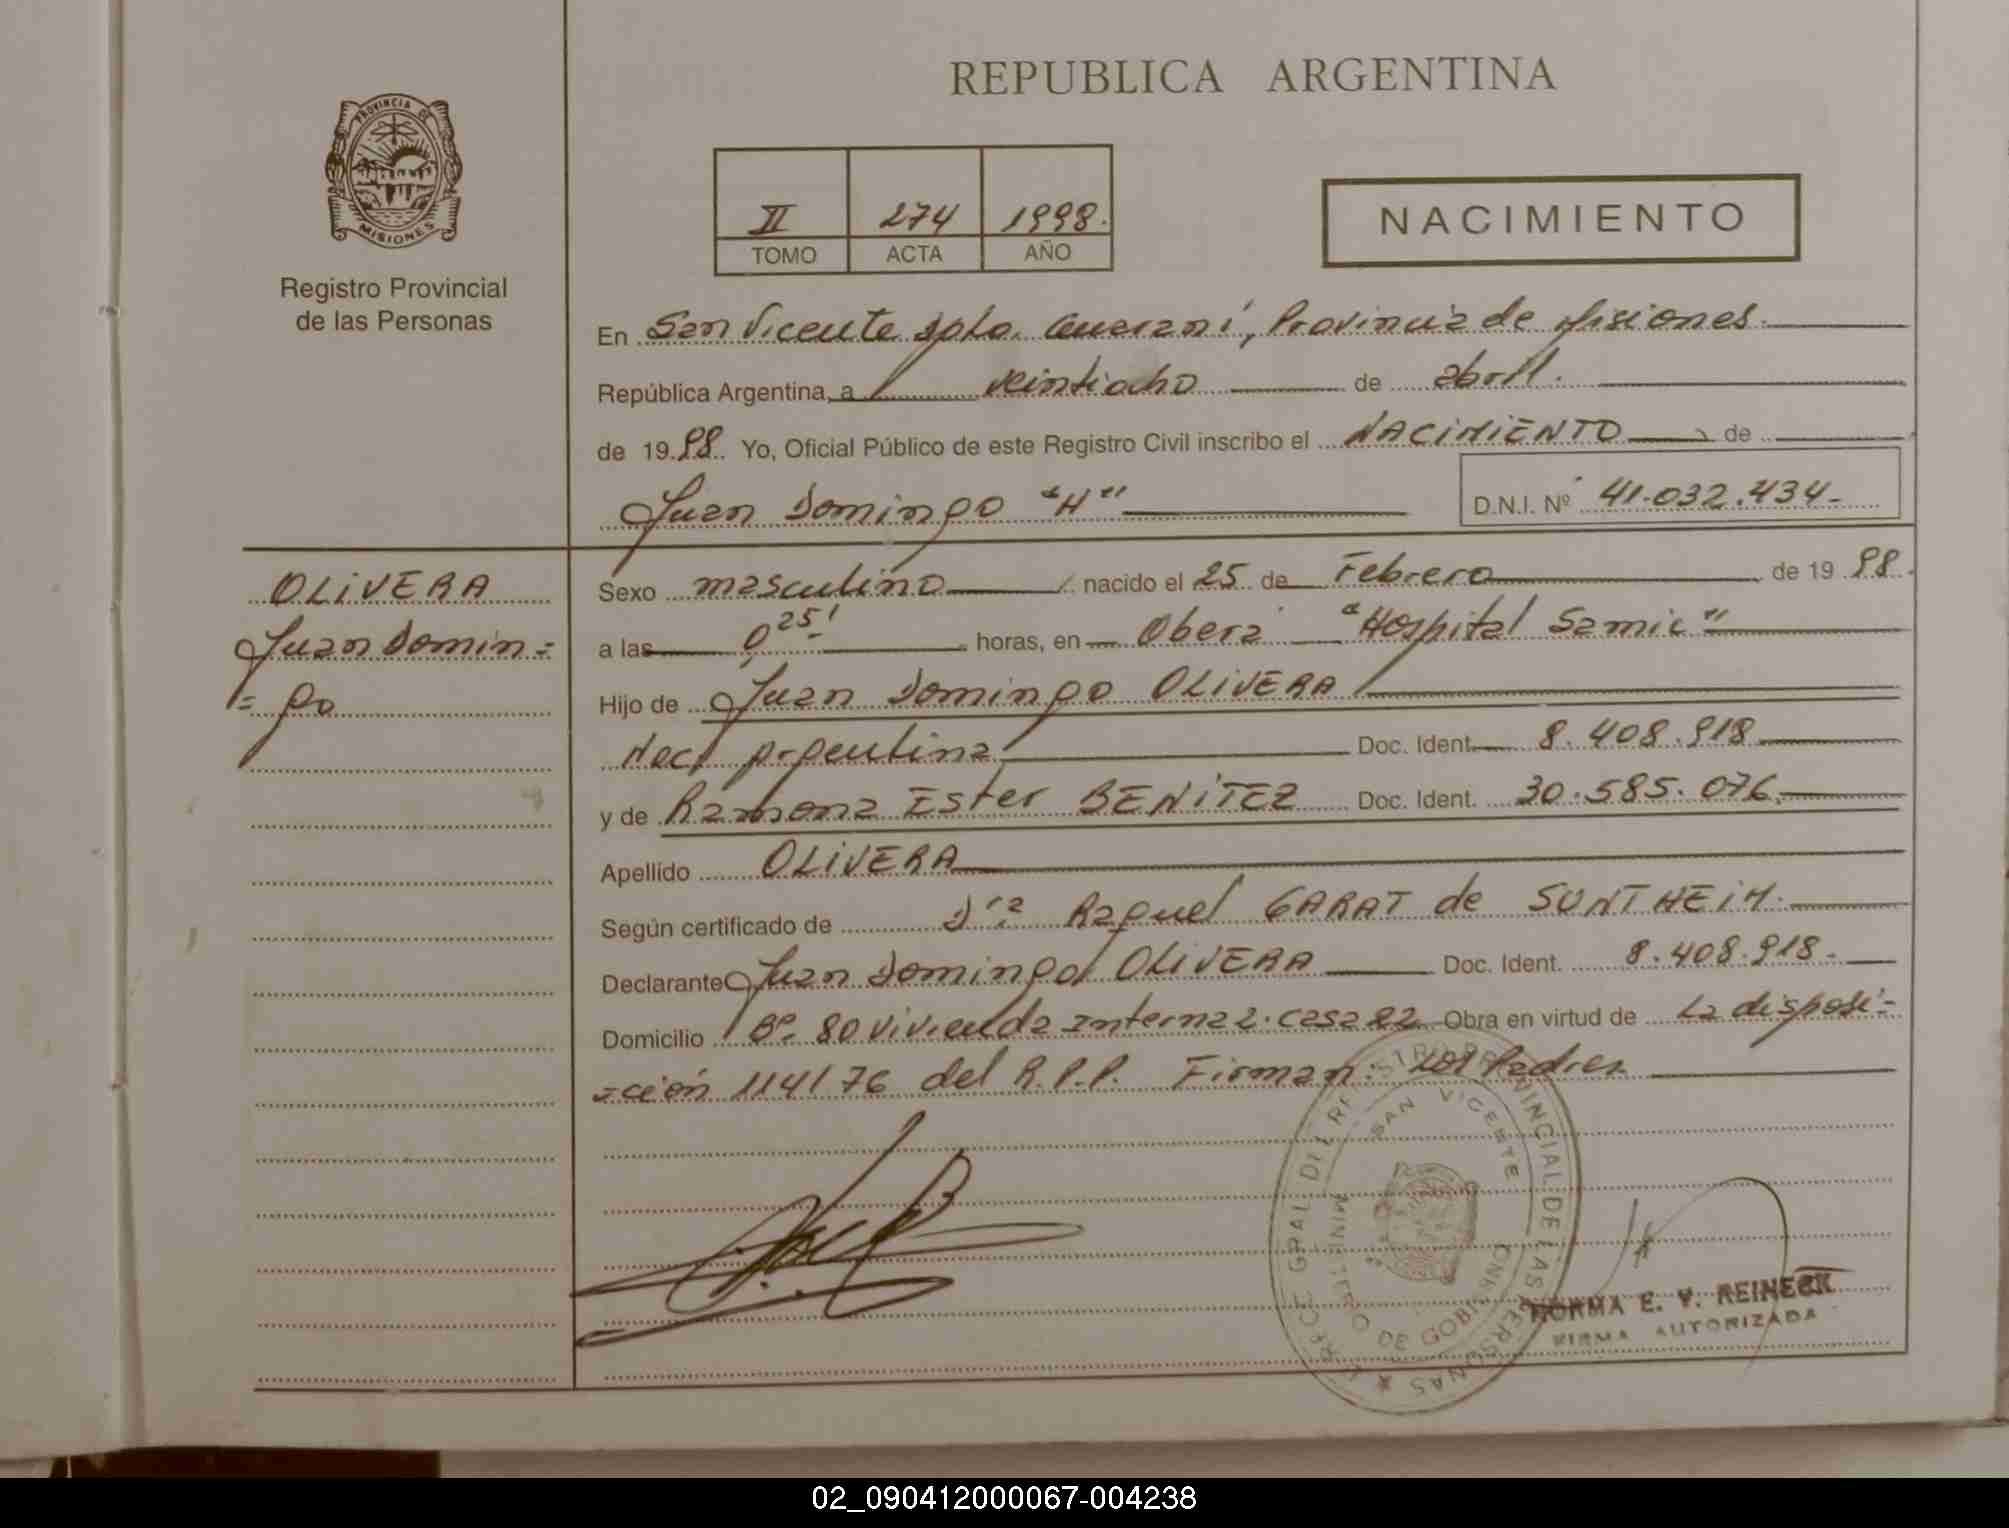 REPUBLICA ARGENTINA
PROVINCIA DE
MISIONES
Registro Provincial
de las Personas
II 274 1998.
TOMO ACTA AÑO
NACIMIENTO
En San Vicente Dpto. Guaraní, Provincia de Misiones.
República Argentina, a veintiocho de abril.
de 1998. Yo, Oficial Público de este Registro Civil inscribo el NACIMIENTO de
Juan Domingo "H"
D.N.I. Nº 41.032.434-
OLIVERA
Juan Domin=
=go
Sexo masculino nacido el 25 de Febrero de 1998.
a las 0,25' horas, en Oberá "Hospital Samic"
Hijo de Juan Domingo OLIVERA
Nac. Argentina Doc. Ident. 8.408.918
y de Ramona Ester BENITEZ Doc. Ident. 30.585.076.
Apellido OLIVERA
Según certificado de Dra Raquel GARAT de SUNTHEIM.
Declarante Juan Domingo OLIVERA Doc. Ident. 8.408.918-
Domicilio Bº 80 Vivienda Interna 2. Casa 22 Obra en virtud de La disposi=
=ción 114/76 del R.P.P. Firman: Los Padres
REGISTRO PROVINCIAL DE LAS PERSONAS
SAN VICENTE
MINISTERIO DE GOBIERNO
NORMA E. V. REINECK
FIRMA AUTORIZADA
02_090412000067-004238